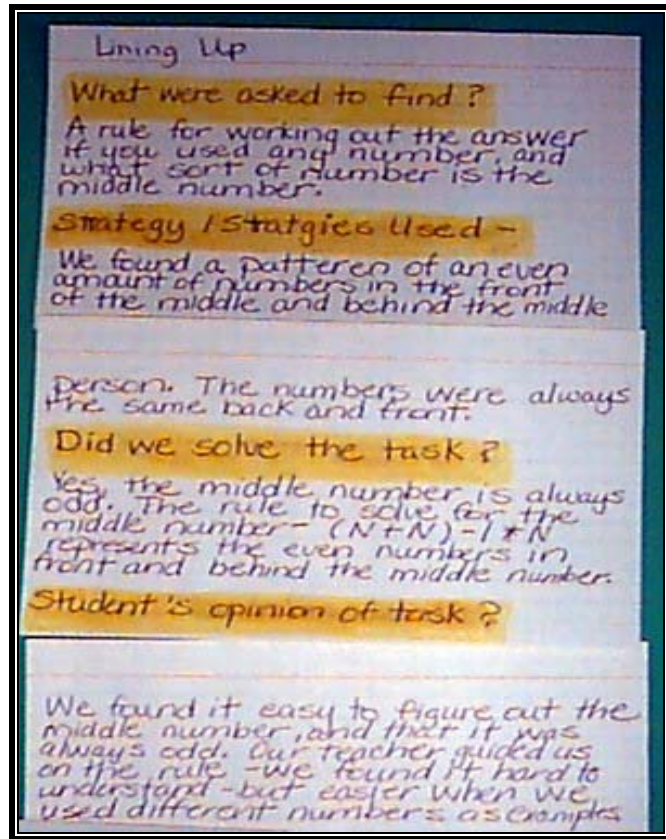 Lining Up
What were asked to find?
A rule for working out the answer
if you used any number, and
what sort of number is the
middle number.
Strategy / Statgies Used -
We found a patteren of an even
amount of numbers in the front
of the middle and behind the middle
person. The numbers were always
the same back and front.
Did we solve the task?
Yes, the middle number is always
odd. The rule to solve for the
middle number - (N+N)-1 * N
represents the even numbers in
front and behind the middle number.
Student's opinion of task?
We found it easy to figure out the
middle number, and that it was
always odd. Our teacher guided us
on the rule - we found it hard to
understand - but easier when we
used different numbers as examples